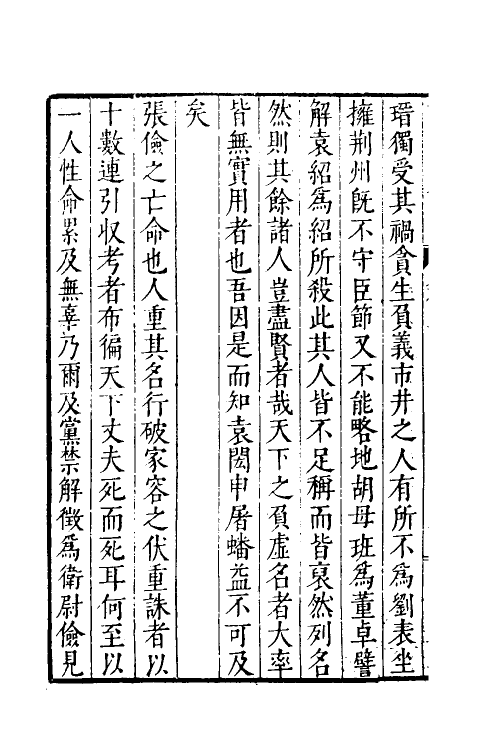 瑨獨受其禍貪生負義市井之人有所不為劉表坐
擁荆州既不守臣節又不能略地胡母班為董卓譬
解袁紹為紹所殺此其人皆不足稱而皆裒然列名
然則其餘諸人豈盡賢者哉天下之負虛名者大率
皆無實用者也吾因是而知袁閎申屠蟠益不可及
矣
張儉之亡命也人重其名行破家容之伏重誅者以
十數連引収考者布徧天下丈夫死而死耳何至以
一人性命累及無辜乃爾及黨禁解徵為衛尉儉見